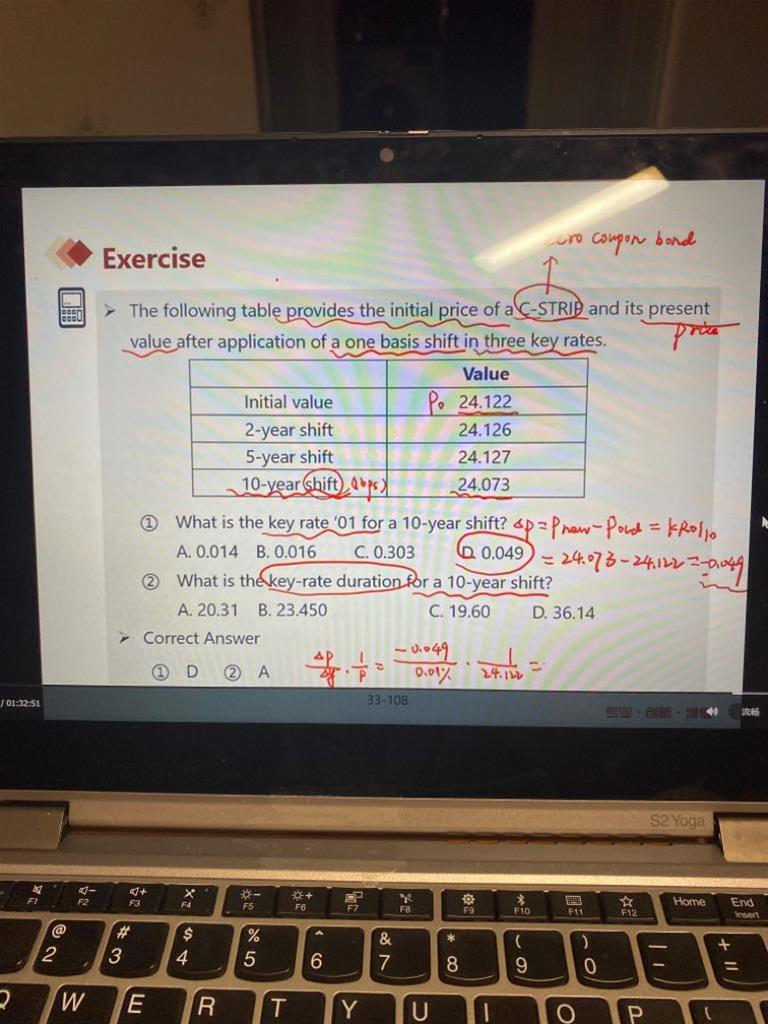 zero coupon bond
Exercise
➢ The following table provides the initial price of a C-STRIP and its present
price
value after application of a one basis shift in three key rates.
Value
Initial value P₀ 24.122
2-year shift 24.126
5-year shift 24.127
10-year shift (1bps) 24.073
① What is the key rate '01 for a 10-year shift? ΔP = Pnew - Pold = KR01₁₀
A. 0.014 B. 0.016 C. 0.303 D. 0.049 = 24.073 - 24.122 = -0.049
② What is the key-rate duration for a 10-year shift?
A. 20.31 B. 23.450 C. 19.60 D. 36.14
➢ Correct Answer
① D ② A ΔP/Δy · 1/P = -0.049/0.01% · 1/24.122 =
/ 01:32:51
33-108
专业·创新·增值
流畅
S2 Yoga
F1 F2 F3 F4 F5 F6 F7 F8 F9 F10 F11 F12 Home End
Insert
@ # $ % ^ & * ( ) — +
2 3 4 5 6 7 8 9 0 - =
Q W E R T Y U I O P {